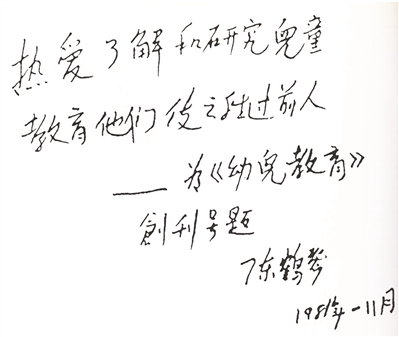 热爱了解和研究兒童
教育他们使之胜过前人
——为《幼兒教育》
創刊号题
陈鹤琴
1981年一11月